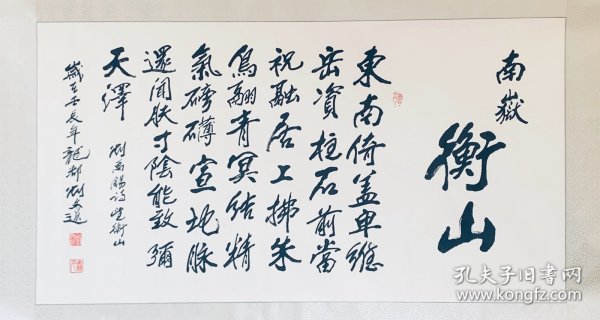 南嶽
衡山
東南倚盖卑維
岳資柱石前當
祝融居上拂朱
鳥翮青冥結精
氣磅礴宣地脉
還聞膚寸陰能致彌
天澤
劉禹錫詩望衡山
歲在壬辰年龍都劉文選
孔夫子旧书网
www.kongfz.com